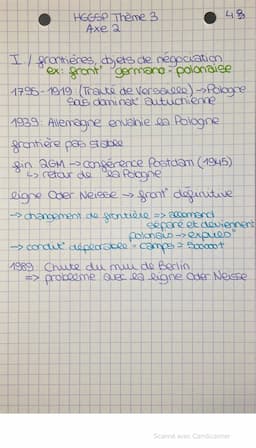 HGGSP Thème 3
48
Axe 2
I / frontières, objets de négociation
ex: front° germano-polonaise
1795-1919 (Traité de Versailles) → Pologne
sous dominat° autrichienne
1939: Allemagne envahie la Pologne
frontière pas stable
fin 2GM → conférence Postdam (1945)
↳ retour de la Pologne
ligne Oder Neisse → front° définitive
→ changement de frontière => allemand
séparé et deviennent
polonais → expuls°
→ condit° déplorable - camps
1989 Chute du mur de Berlin
=> problème avec la ligne Oder Neisse
Scanné avec CamScanner